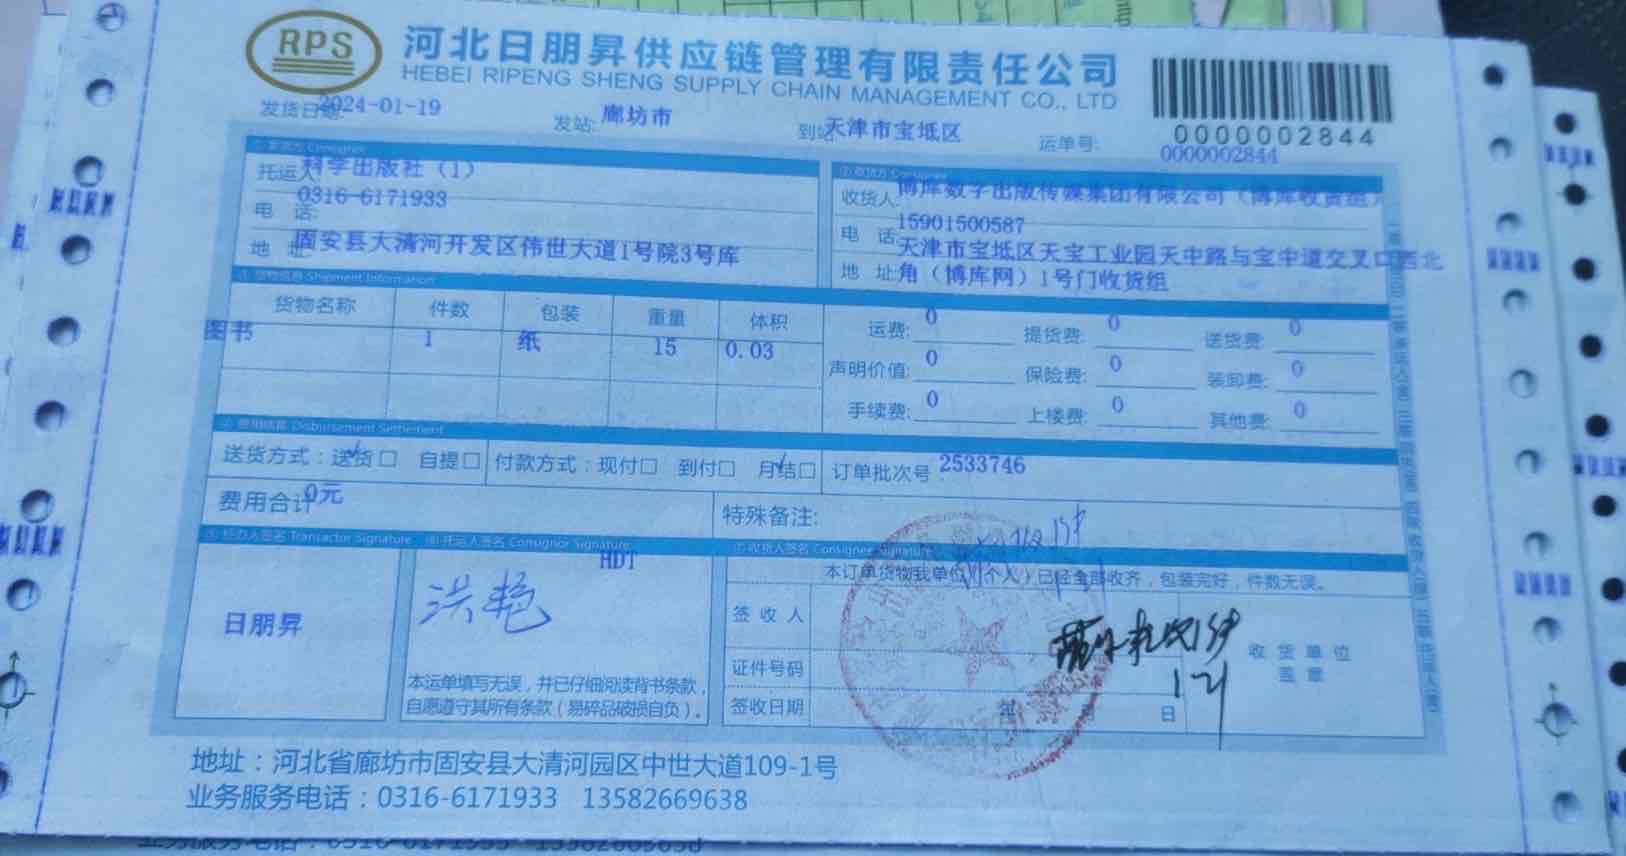 RPS
河北日朋昇供应链管理有限责任公司
HEBEI RIPENG SHENG SUPPLY CHAIN MANAGEMENT CO., LTD
发货日期: 2024-01-19 发站: 廊坊市 到站: 天津市宝坻区 运单号: 0000002844
0000002844
托运人 科学出版社（1）
电 话: 0316-6171933
地 址: 固安县大清河开发区伟世大道1号院3号库
收货人 博库数字出版传媒集团有限公司（博库收货组）
电 话 15901500587
地 址 天津市宝坻区天宝工业园天中路与宝中道交叉口西北
角（博库网）1号门收货组
货物信息 Shipment Information
货物名称 件数 包装 重量 体积
图书 1 纸 15 0.03
运费: 0 提货费: 0 送货费: 0
声明价值: 0 保险费: 0 装卸费: 0
手续费: 0 上楼费: 0 其他费: 0
费用结算 Disbursement Settlement
送货方式：送货□ 自提□ 付款方式：现付□ 到付□ 月结□ 订单批次号: 2533746
费用合计 0元 特殊备注:
⑤ 经办人签名 Transactor Signature ⑥ 托运人签名 Consignor Signature ⑦ 收货人签名 Consignee Signature
HDT
本订单货物我单位(个人)已经全部收齐，包装完好，件数无误。
日朋昇
洪艳
本运单填写无误，并已仔细阅读背书条款，
自愿遵守其所有条款（易碎品破损自负）。
签 收 人
证件号码
签收日期 年 月 日
收 货 单 位
盖 章
地址：河北省廊坊市固安县大清河园区中世大道109-1号
业务服务电话：0316-6171933 13582669638